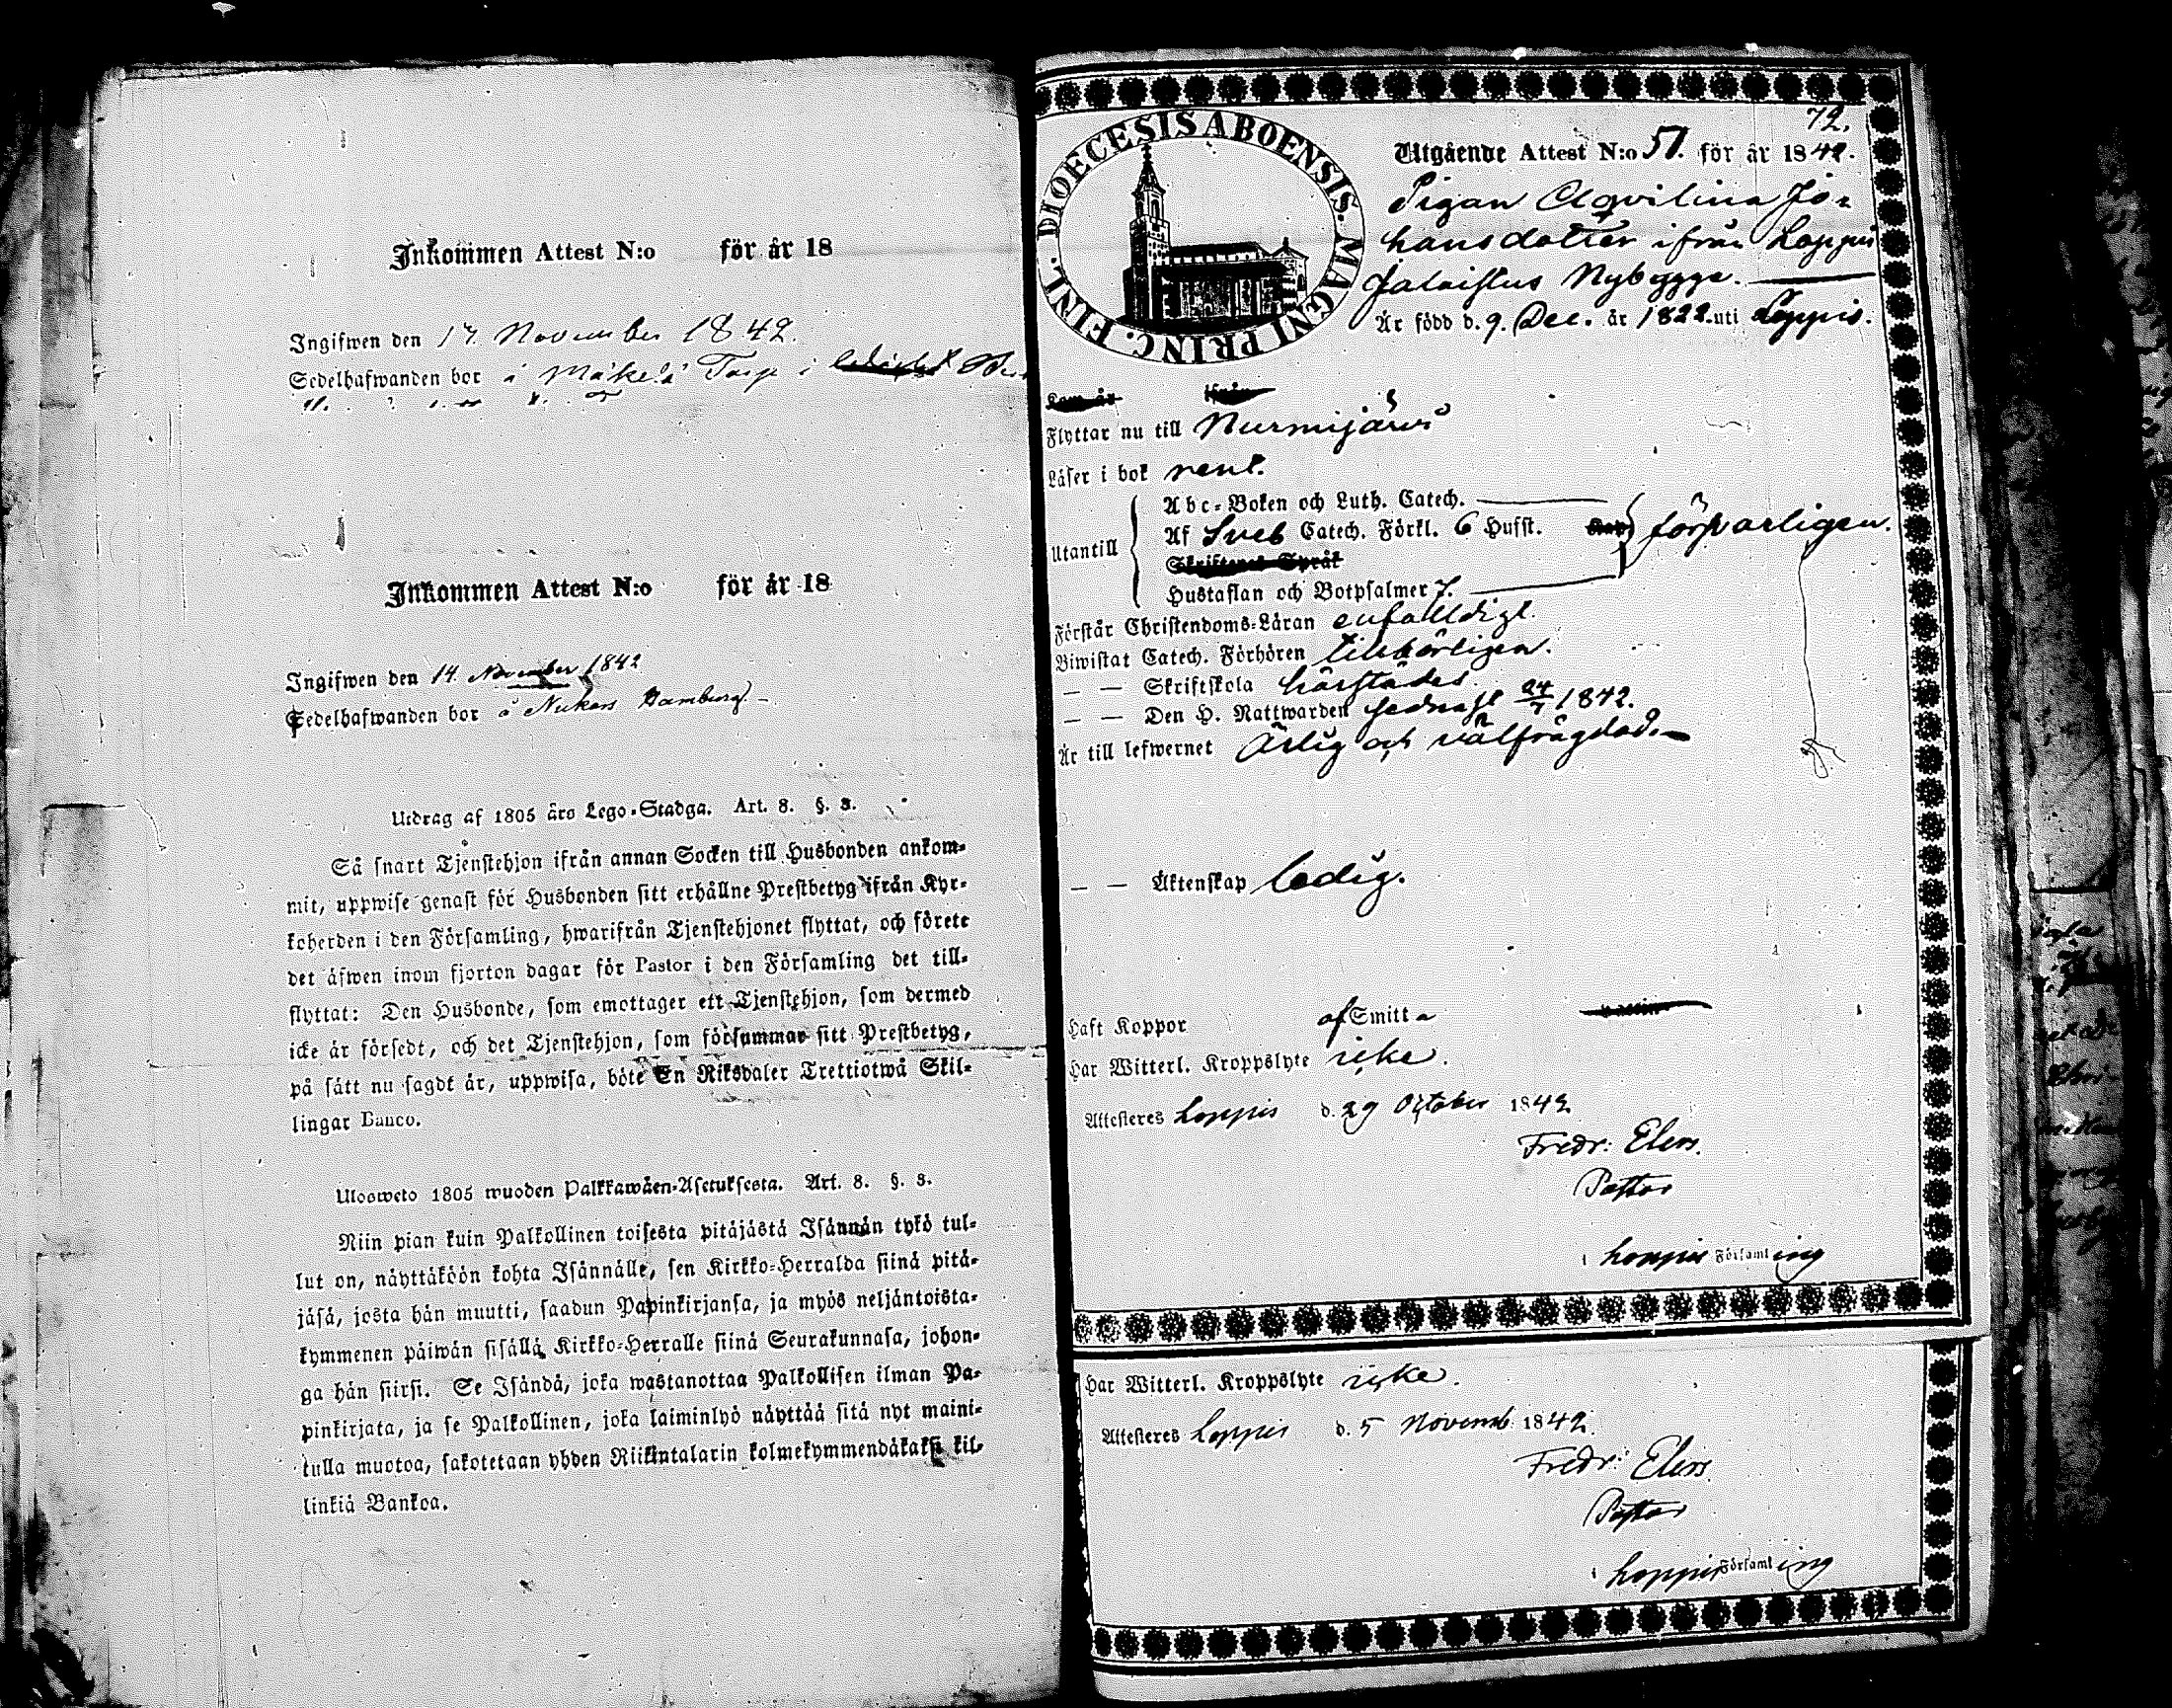 Inkommen Attest N:o för år 18
Ingifwen den 17 November 1842.
Sedelhafwanden bor å Mäkelä Torp i
Inkommen Attest N:o för år 18
Ingifwen den 14 November 1842
Sedelhafwanden bor å Nukars Hamburg –
Utdrag af 1805 års Lego-Stadga. Art. 8. §. 3.
Så snart Tjenstehjon ifrån annan Socken till Husbonden ankom-
mit, uppwise genast för Husbonden sitt erhållne Prestbetyg ifrån Kyr-
koherden i den Församling, hwarifrån Tjenstehjonet flyttat, och förete
det äfwen inom fjorton dagar för Pastor i den Församling det till-
flyttat: Den Husbonde, som emottager ett Tjenstehjon, som dermed
icke är försedt, och det Tjenstehjon, som försummar sitt Prestbetyg,
på sätt nu sagdt är, uppwisa, böte En Riksdaler Trettiotwå Skil-
lingar Banco.
Ulosweto 1805 wuoden Palkkawäen-Asetuksesta. Art. 8. §. 3.
Niin pian kuin Palkollinen toisesta pitäjästä Isännän tykö tul-
lut on, näyttäköön kohta Isännälle, sen Kirkko-Herralda siinä pitä-
jäsä, josta hän muutti, saadun Papinkirjansa, ja myös neljäntoista-
kymmenen päiwän sisällä Kirkko-Herralle siinä Seurakunnasa, johon-
ga hän siirsi. Se Isändä, joka wastanottaa Palkollisen ilman Pa-
pinkirjata, ja se Palkollinen, joka laiminlyö näyttää sitä nyt maini-
tulla muotoa, sakotetaan yhden Riikintalarin kolmekymmendäkaksi kil-
linkiä Bankoa.
72.
DIOECESIS ABOENSIS. MAGNI PRINC. FINL.
Utgående Attest N:o 51. för år 1842.
Pigan Aqvilina Jo-
hansdotter ifrån Loppis
Jalaistus Nybygge.
Är född d. 9. Dec. år 1822. uti Loppis.
Kom år ifrån
Flyttar nu till Nurmijärvi
Läser i bok rent.
Utantill
Abc-Boken och Luth. Catech.
Af Sveb Catech. Förkl. 6 Hufst. försvarligen.
Skriftenes Språk
Hustaflan och Botpsalmer 7.
Förstår Christendoms-Läran enfalldigt.
Biwistat Catech. Förhören tillbörligen.
— — Skriftskola härstädes.
— — Den H. Nattwarden sednast 24/7 1842.
Är till lefwernet Ärlig och välfrägdad.
— — Äktenskap ledig.
Haft Koppor af Smitta
Har Witterl. Kroppslyte icke.
Attesteras Loppis d. 29 October 1842
Fredr: Elers.
Pastor
i Loppis Församling
Har Witterl. Kroppslyte icke.
Attesteras Loppis d. 5 Novemb. 1842.
Fredr: Elers.
Pastor
i Loppis Församling